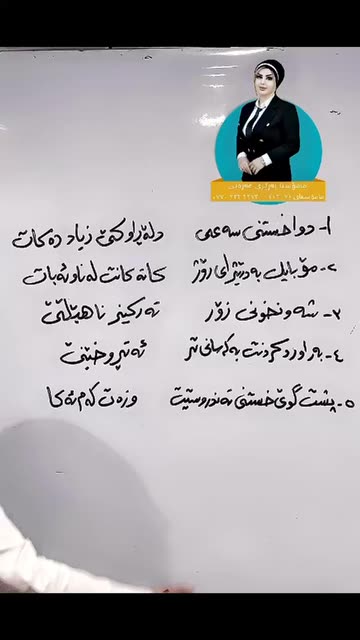 ١- دواخستنی سەعی دلەڕاوکێ زیاد دەکات
٢- مۆبایل بە درێژای ڕۆژ کاتەکانت لەناو ئەبات
٣- شەونخونی زۆر تەرکیز ناهێڵێ
٤- بەراوردکردنت بە کەسانی تر ئەتڕوخێنێ
٥- پشت گوێ خستنی تەندروستیت وزەت کەم ئەکا